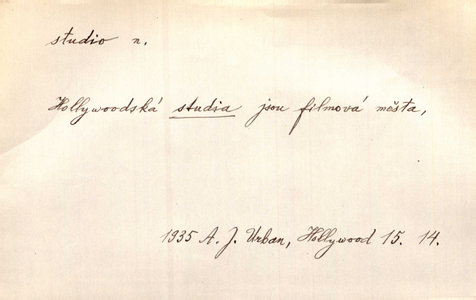 studio n.
Hollywoodská studia jsou filmová města,
1935 A. J. Urban, Hollywood 15. 14.